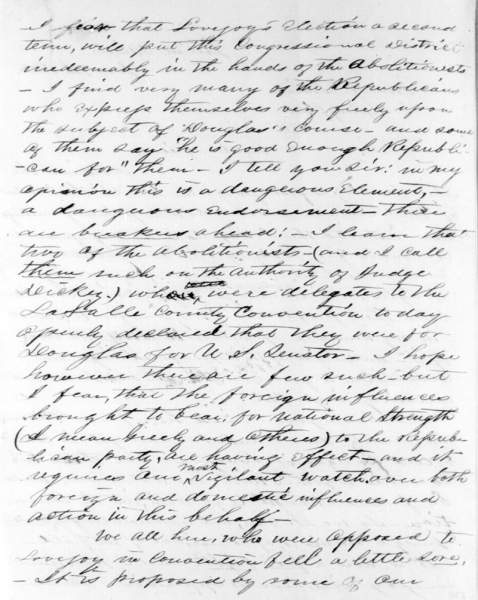 I fear that Lovejoy's election a second
term, will put this Congressional District
irredeemably in the hands of the Abolitionists
- I find very many of the Republicans
who express themselves very freely upon
the subject of Douglas's course - and some
of them say "he is good enough Republi-
-can for" them - I tell you Sir: in my
opinion this is a dangerous element, -
a dangerous endorsement - there
are breakers ahead! - I learn that
two of the Abolitionists - (and I call
them such on the authority of Judge
Dickey.) who were delegates to the
LaSalle County Convention to day
openly declared that they were for
Douglas for U. S. Senator - I hope
however there are few such - but
I fear, that the foreign influences
brought to bear for national strength
(I mean Greely and others) to the Repub-
lican party, are having effect - and it
requires our most vigilant watch, over both
foreign and domestic influences and
action in this behalf -
We all here, who were opposed to
Lovejoy in convention fell a little sore.
- It is proposed by some of our